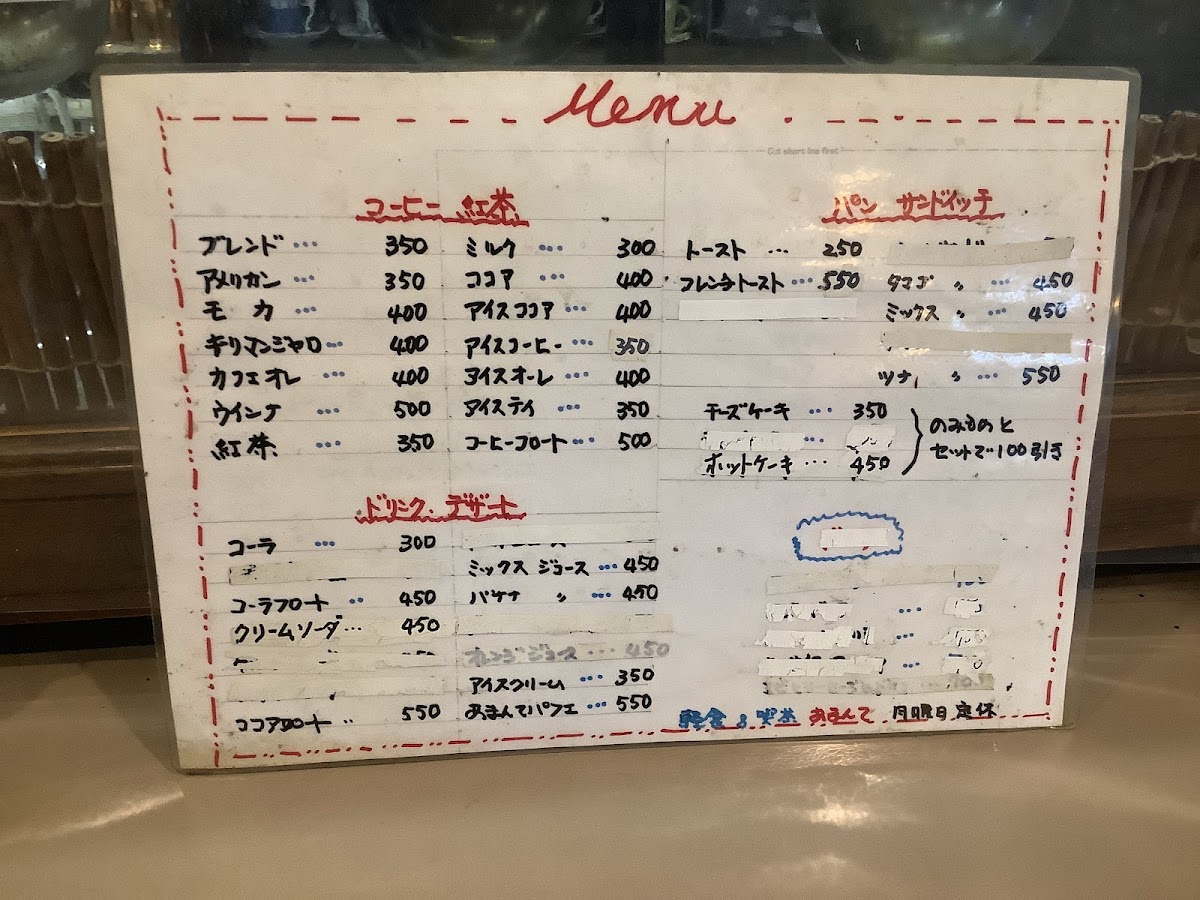 Menu
Cut short line first
コーヒー 紅茶
ブレンド … 350
アメリカン … 350
モカ 400
キリマンジャロ … 400
カフェオレ … 400
ウインナ … 500
紅茶 … 350
ミルク … 300
ココア … 400
アイスココア … 400
アイスコーヒー … 350
アイスオーレ … 400
アイスティ … 350
コーヒーフロート … 500
パン サンドイッチ
トースト … 250
フレンチトースト … 550
タマゴ 〃 … 450
ミックス 〃 … 450
ツナ 〃 … 550
チーズケーキ … 350
ホットケーキ … 450
のみものと
セットで100引き
ドリンク・デザート
コーラ … 300
コーラフロート … 450
クリームソーダ … 450
ココアフロート … 550
ミックスジュース … 450
バナナ 〃 … 450
オレンジジュース … 450
アイスクリーム … 350
あまんてパフェ … 550
軽食&喫茶 あまんて 月曜日定休